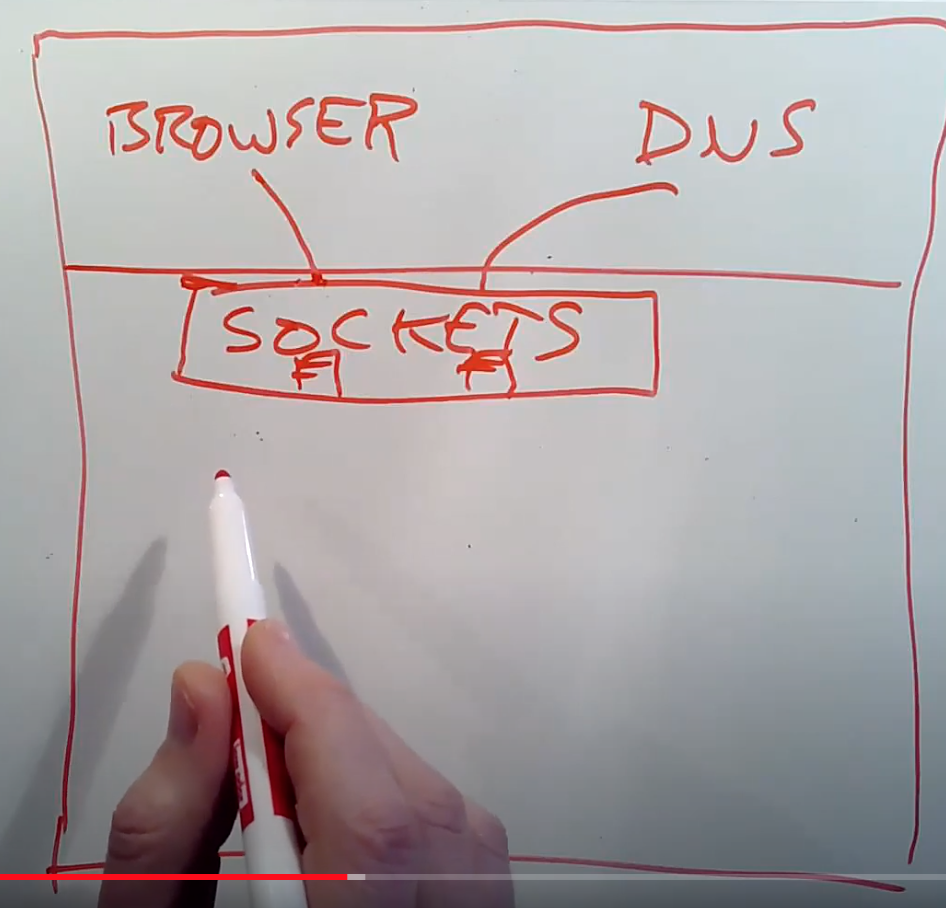 BROWSER DNS
SOCKETS